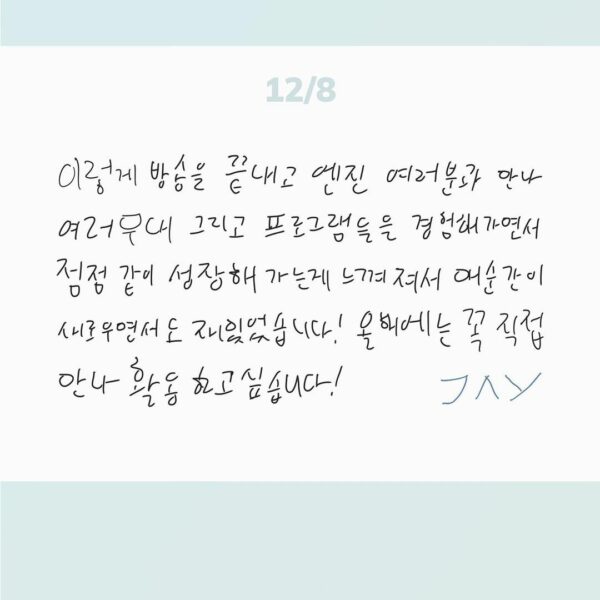 12/8
이렇게 방송을 끝내고 엔진 여러분과 만나
여러무대 그리고 프로그램들을 경험해가면서
점점 같이 성장해 가는게 느껴져서 매순간이
새로우면서도 재밌었습니다! 올해에는 꼭 직접
만나 활동하고싶습니다!
JAY